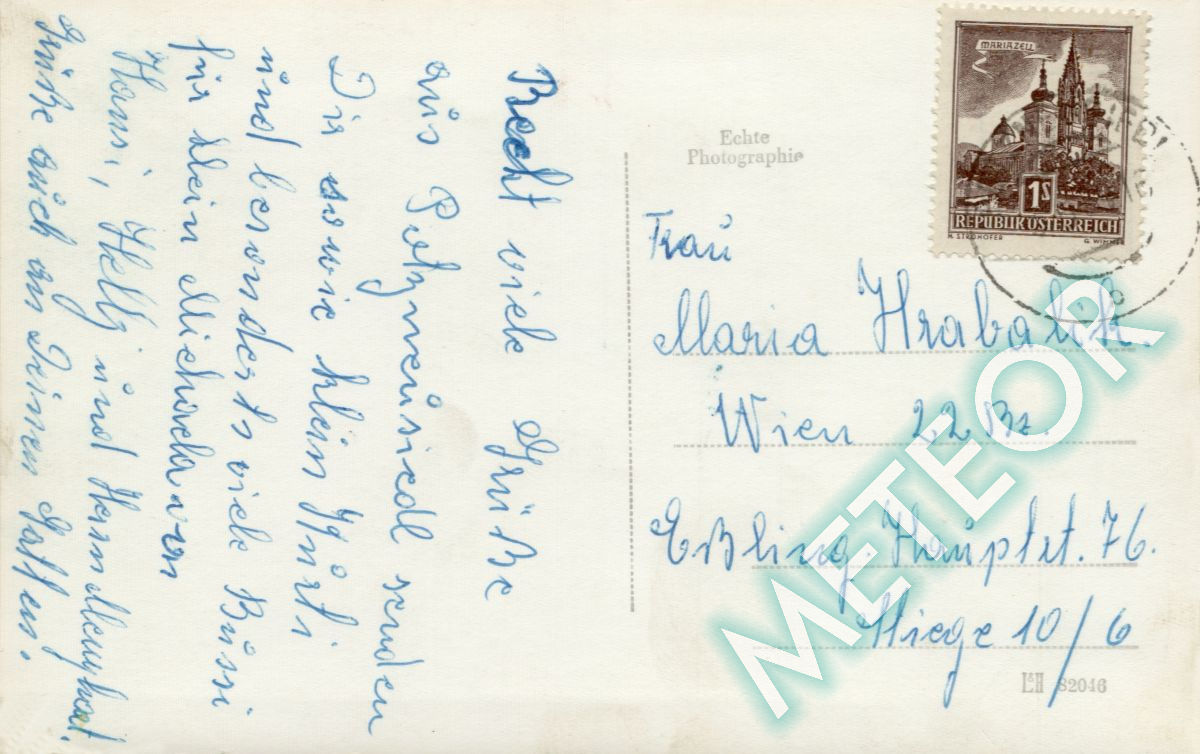 Recht viele Grüße
aus Potzneusiedl senden
Dir sowie klein Kurti
und besonderts viele Bussi
für Dein Michaela von
Hansi, Helly und Herrn
Grüße auch an Deinen Gatten.
MARIAZELL
1S
REPUBLIK ÖSTERREICH
H. STROHOFER
G. WIMMER
Echte
Photographie
Frau
Maria Hrabalik.
Wien 22 Bz
Eßling. Hauptst. 76.
Stiege 10/6
L&H 82046
METEOR